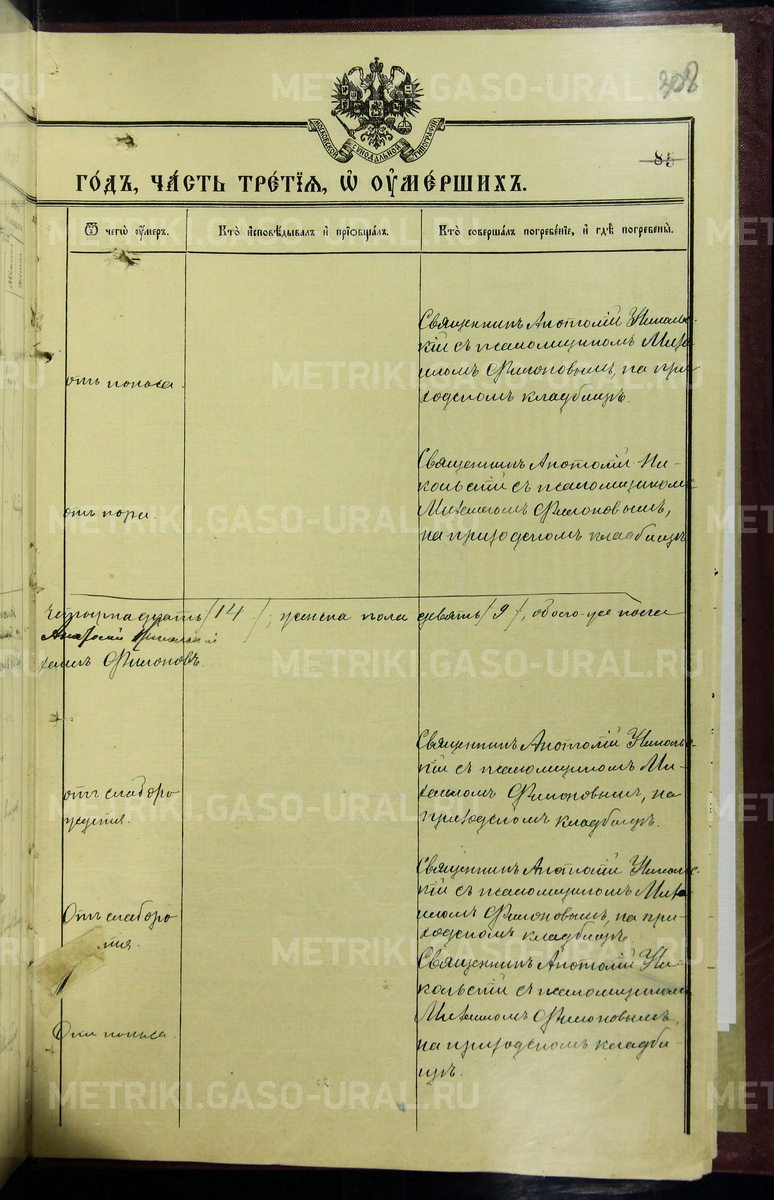 308
МОСКОВСКОЙ СѴНОДАЛЬНОЙ ТИПОГРАФІИ
85
ГО́ДЪ, ЧА́СТЬ ТРЕ́ТІѦ, Ѡ҆ ОУ҆МЕ́РШИХЪ.
Ѿ чегѡ̀ оу҆́меръ.
Кто̀ и҆сповѣ́дывалъ и҆ прїѡбща́лъ.
Кто̀ соверша́лъ погребе́нїе, и҆ гдѣ̀ погребены̀.
отъ поноса.
Священникъ Анатолій Николь-
скій съ псаломщикомъ Миха
иломъ Филоновымъ, на при
ходскомъ кладбищѣ.
отъ кори.
Священникъ Анатолій Ни-
кольскій съ псаломщикомъ
Михаиломъ Филоновымъ,
на приходскомъ кладбищѣ
Четырнадцать /14/, женска пола девять /9/, обоего
хаилъ Филоновъ.
отъ слаборо
ждения.
Священникъ Анатолій Николь-
скій съ псаломщикомъ Ми-
хаиломъ Филоновымъ, на
приходскомъ кладбищѣ.
Отъ слаборо
Священникъ Анатолій Николь-
скій съ псаломщикомъ Миха
иломъ Филоновымъ, на при-
ходскомъ кладбищѣ
поноса.
Священникъ Анатолій Ни-
кольскій съ псаломщикомъ
Михаиломъ Филоновымъ,
на приходскомъ кладби-
щѣ.
METRIKI.GASO-URAL.RU